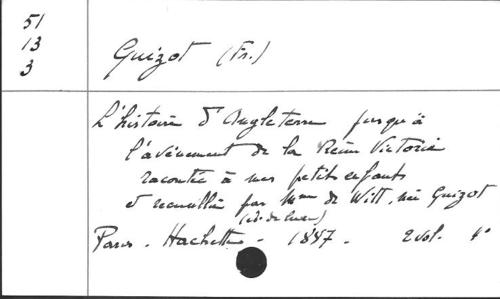 51
13
3
Guizot (Fr.)
L'histoire d'Angleterre jusqu'à
l'avènement de la Reine Victoria
racontée à mes petits enfants
et recueillie par Mme de Witt, née Guizot
Paris. Hachette. 1887. 2 vol. 4°